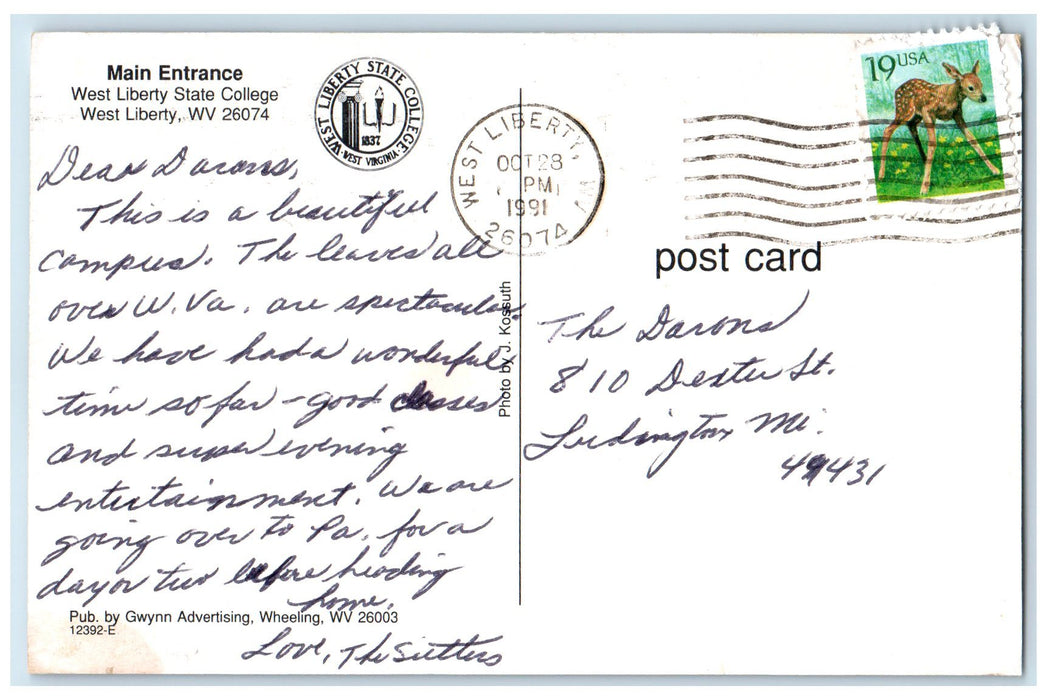 Main Entrance
West Liberty State College
West Liberty, WV 26074
WEST LIBERTY STATE COLLEGE
1837
WEST VIRGINIA
WEST LIBERTY, WV
OCT 28
PM
1991
26074
19USA
post card
Dear Darons,
This is a beautiful
campus. The leaves all
over W. Va. are spectacular.
We have had a wonderful
time so far - good classes
and super evening
entertainment. We are
going over to Pa. for a
day or two before heading
home.
Love, The Sutters
Photo by J. Kossuth
The Darons
810 Dexter St.
Ludington Mi.
49431
Pub. by Gwynn Advertising, Wheeling, WV 26003
12392-E